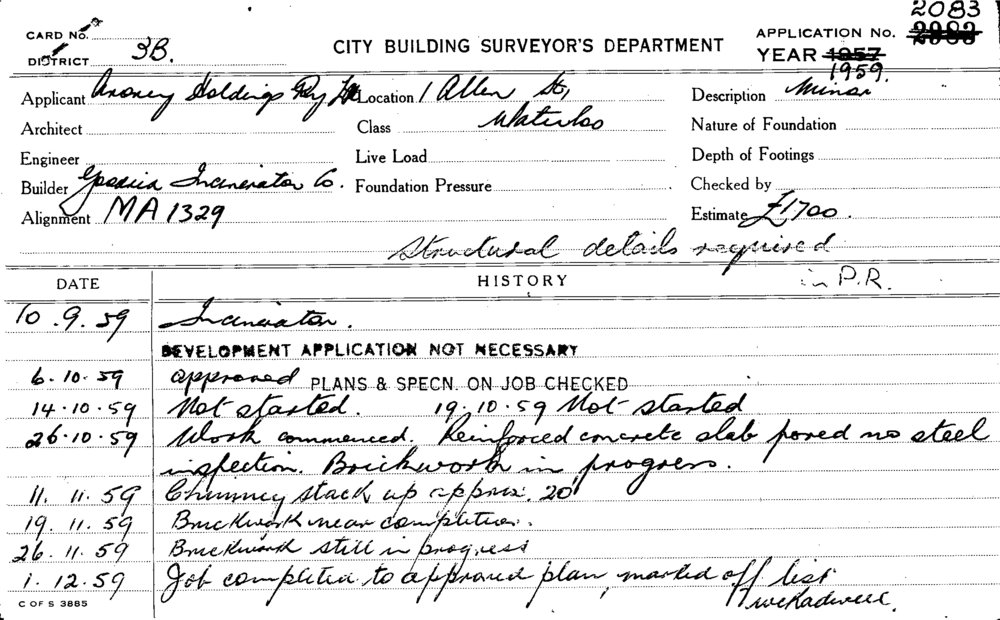 2083
CARD No. CITY BUILDING SURVEYOR'S DEPARTMENT APPLICATION No. 2982
DISTRICT 3B. YEAR 1957
1959.
Applicant Holdings Pty Ltd Location 1 Allen St, Description Minor
Architect Class Waterloo Nature of Foundation
Engineer Live Load Depth of Footings
Builder Incinerator Co. Foundation Pressure Checked by
Alignment MA 1329 Estimate £1700.
Structural details required
in P.R.
DATE HISTORY
10.9.59 Incinerator.
DEVELOPMENT APPLICATION NOT NECESSARY
6.10.59 approved PLANS & SPECN. ON JOB CHECKED
14.10.59 Not started. 19.10.59 Not started
26.10.59 Work commenced. Reinforced concrete slab pored no steel
inspection. Brickwork in progress.
11.11.59 Chimney stack up approx. 20'
19.11.59 Brickwork near completion.
26.11.59 Brickwork still in progress
1.12.59 Job completed to approved plan, marked off list
C OF S 3885